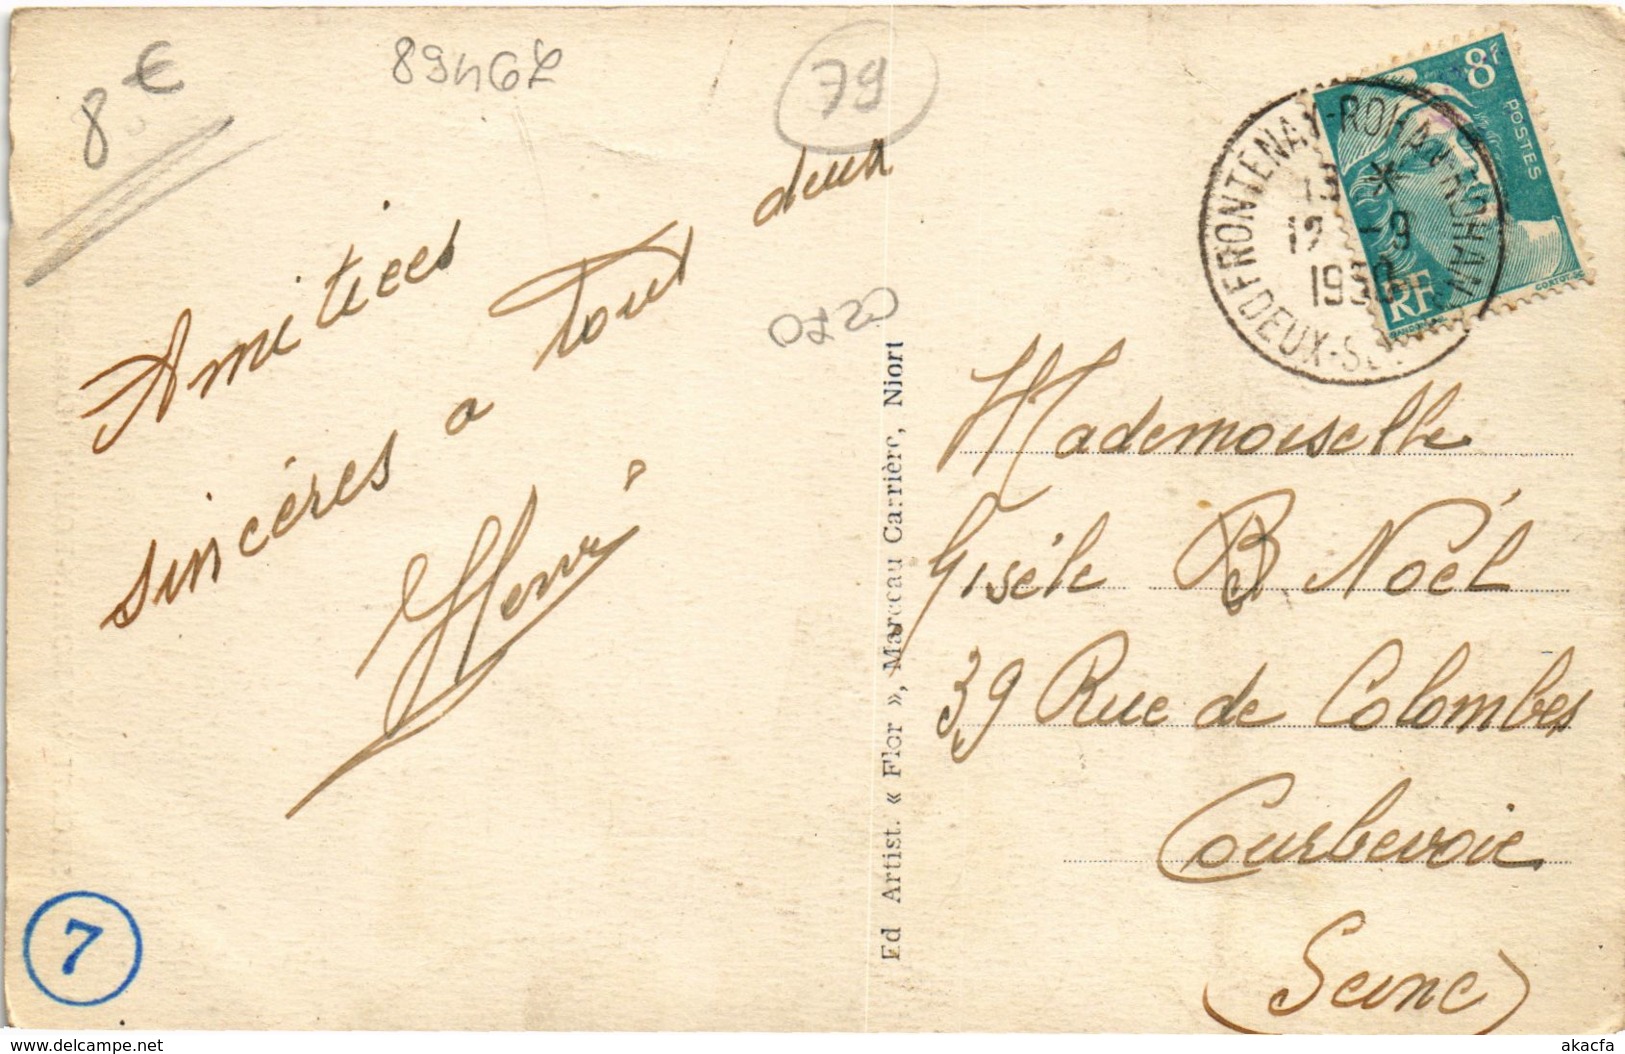 8 €
89467
79
Amitiées
sincères a tout deux
Henri
0220
7
Ed Artist. « Flor », Marceau Carrière, Niort
8F
POSTES
RF
FRONTENAY-ROHAN-ROHAN
*
12 -9
1950
DEUX-S
Mademoiselle
Gisèle B Noël
39 Rue de Colombes
Courbevoie
(Seine)
akacfa
https://www.delcampe.net